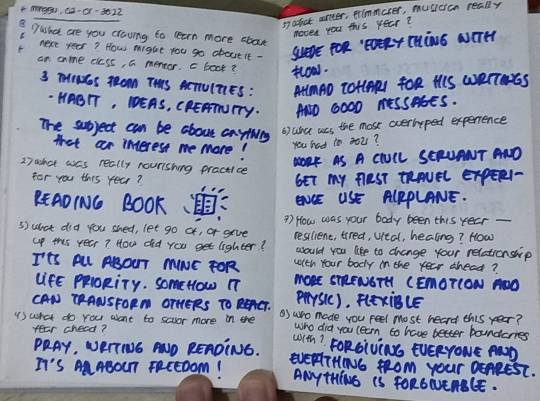 minggu, 02-01-2022
1) What are you craving to learn more about
next year? How might you go about it -
an online class, a mentor, a book?
3 THINGS FROM THIS ACTIVITIES:
- HABIT, IDEAS, CREATIVITY.
The subject can be about anything
that can interest me more!
2) what was really nourishing practice
for you this year?
READING BOOK
3) what did you shed, let go of, or grive
up this year? How did you get lighter?
IT'S ALL ABOUT MINE FOR
LIFE PRIORITY. SOMEHOW IT
CAN TRANSFORM OTHERS TO REACT.
4) what do you want to savor more in the
year ahead?
PRAY, WRITING AND READING.
IT'S ABOUT FREEDOM!
5) what writer, filmmaker, musician really
moved you this year?
SUEDE FOR 'EVERYTHING WITH
FLOW.
AHMAD TOHARI FOR HIS WRITINGS
AND GOOD MESSAGES.
6) what was the most overhyped experience
you had in 2021?
WORK AS A CIVIL SERVANT AND
GET MY FIRST TRAVEL EXPERI-
ENCE USE AIRPLANE.
7) How was your body been this year —
resilient, tired, vital, healing? How
would you like to change your relationship
with your body in the year ahead?
MORE STRENGTH (EMOTION AND
PHYSIC), FLEXIBLE
8) who made you feel most heard this year?
who did you learn to have better boundaries
with? FORGIVING EVERYONE AND
EVERYTHING FROM YOUR DEAREST.
ANYTHING IS FORGIVEABLE.